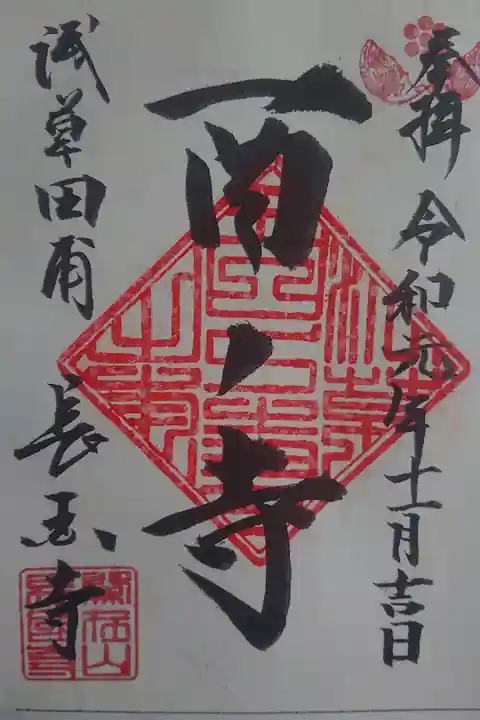 奉拝 令和元年十一月吉日
酉ノ寺
浅草田甫 長国寺